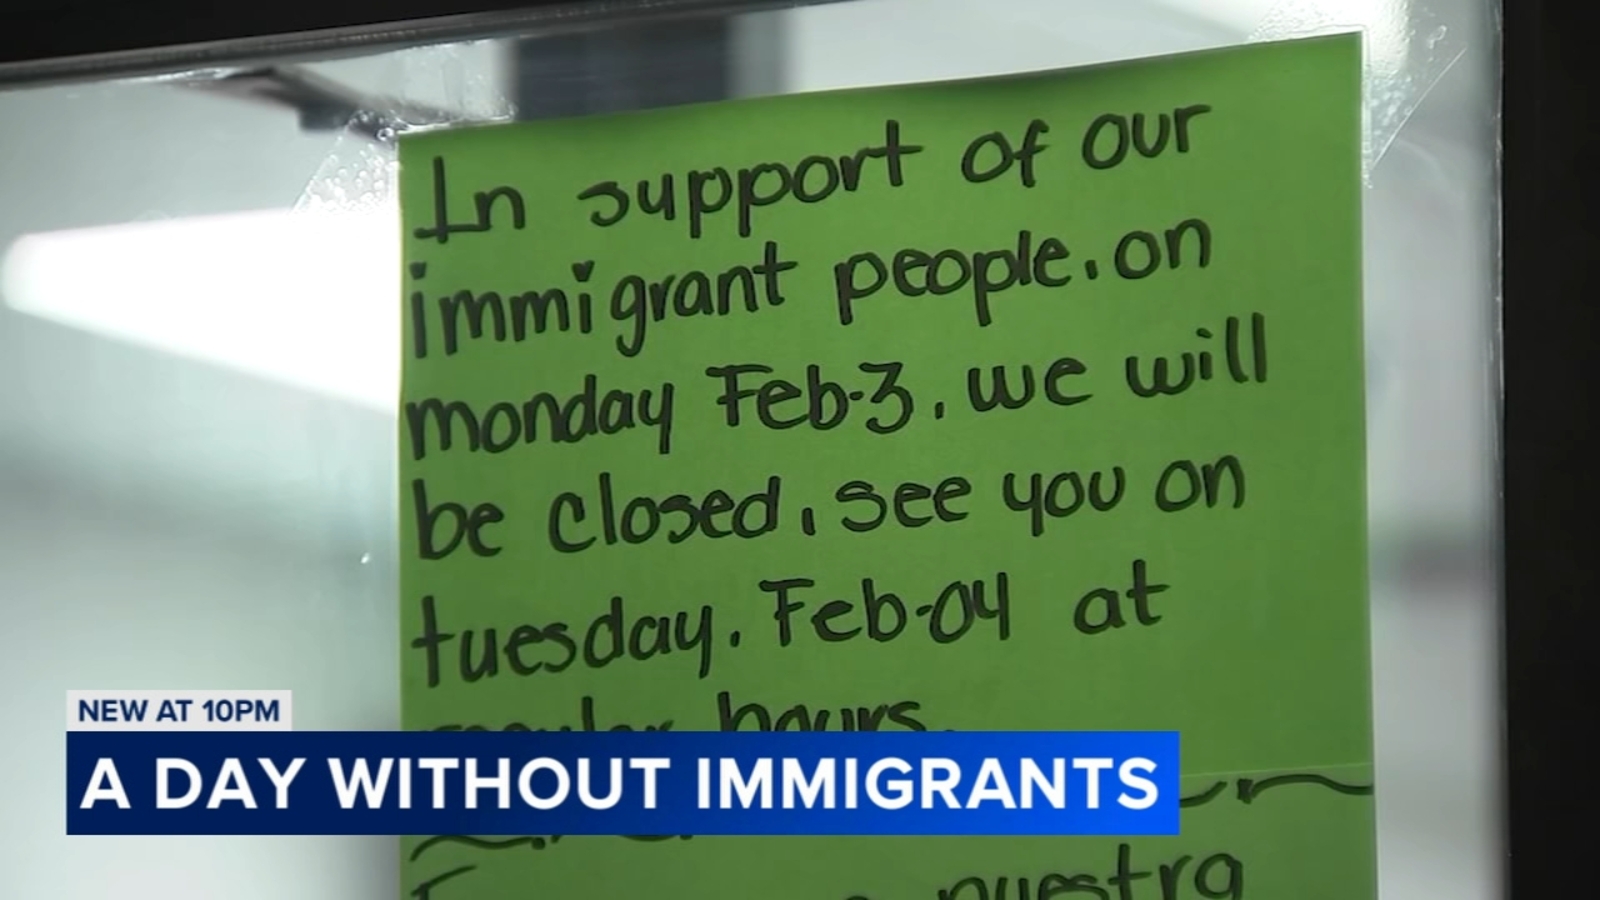 In support of our
immigrant people. on
monday Feb-3. we will
be closed, see you on
tuesday. Feb-04 at
regular hours.
NEW AT 10PM
A DAY WITHOUT IMMIGRANTS
nuestra